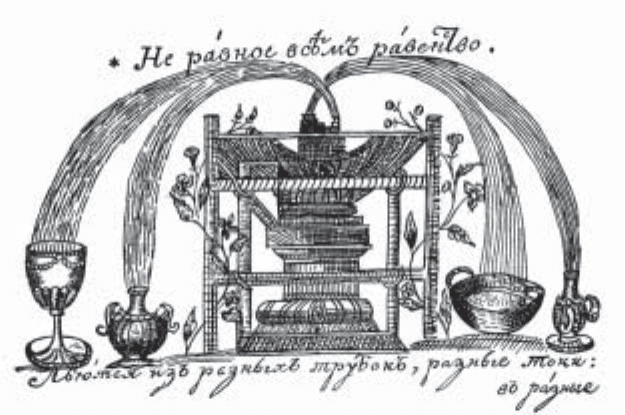 * Не ра́вное всѣ́мъ ра́венство.
Лью́тся изъ разныхъ трубокъ, разные токи:
въ ра́зные